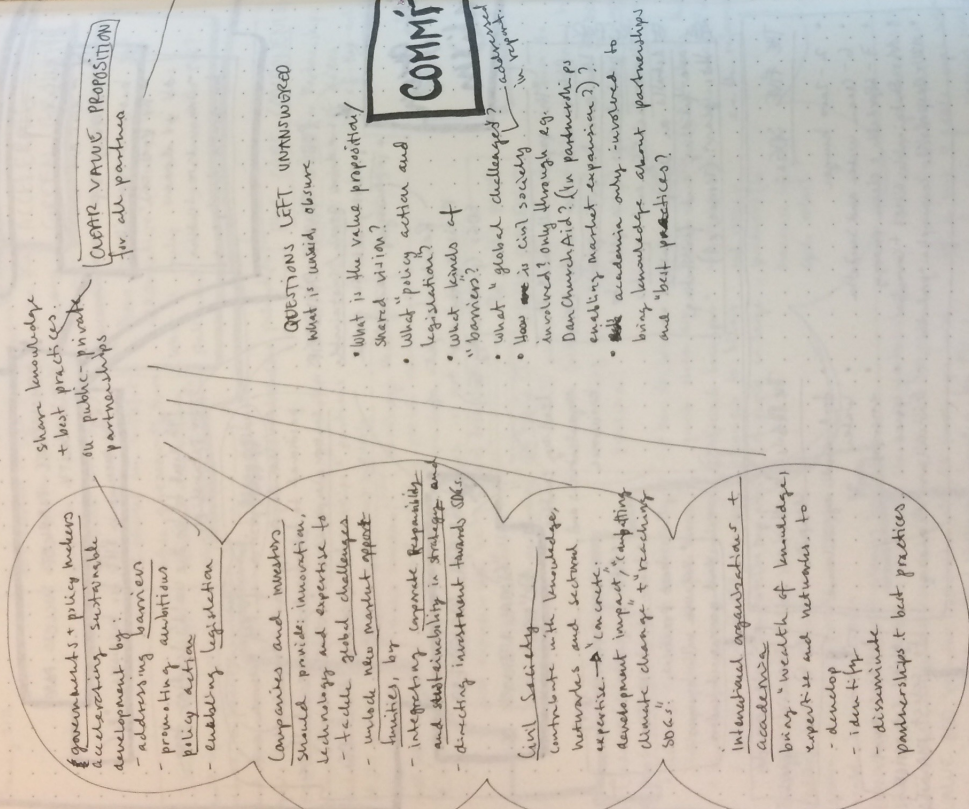 share knowledge
+ best practices
on public-private
partnerships
CLEAR VALUE PROPOSITION
for all partners
governments + policy makers
accelerating sustainable
development by:
- addressing barriers
- promoting ambitious
policy action
- enabling legislation
Companies and investors
should provide: innovation,
technology and expertise to
- tackle global challenges
- unlock new market opport
tunities, by
- integrating Corporate Responsibility
and sustainability in strategy and
- directing investment towards SDGs.
Civil Society
contribute with knowledge,
networks and sectoral
expertise → "concrete
development impact",
climate change" + "reaching
SDGs."
International organisations +
academia
bring "wealth of knowledge,
expertise and networks. to
- develop
- identify
- disseminate
partnerships + best practices.
QUESTIONS LEFT UNANSWERED
what is unsaid, obsure
• What is the value proposition/
shared vision?
• What "policy action and
legislation"?
• What kinds of
"barriers"?
• What "global challenges"? addressed
in report.
• How is civil society
involved? only through eg.
DanChurchAid? (In partnerships
enabling market expansion?)?
• academia only involved to
bring knowledge about partnerships
and "best practices?
COMMI